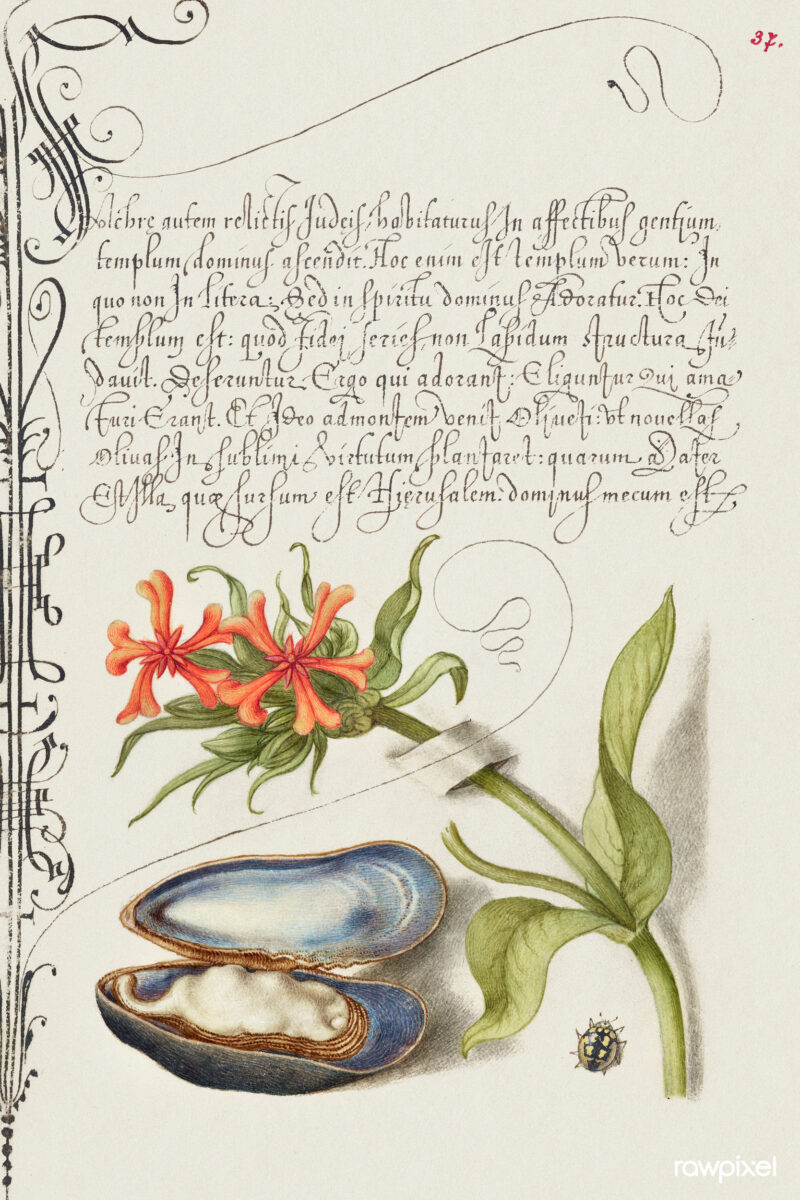 37.
Pulchre autem relictis Judeis, habitaturus In affectibus gentium
templum, dominus ascendit. Hoc enim est templum verum: In
quo non In litera: Sed in spiritu dominus Adoratur. Hoc Dei
templum est: quod fidei series, non Lapidum structura fu-
davit. Deseruntur Ergo qui aderant: Eliguntur Qui ama-
turi Erant. Et Ideo admontem venit Oliueti: vt nouellas
Oliuas In sublimi virtutum plantaret: quarum Mater
Est Illa, quæ sursum est Hierusalem. dominus mecum est
rawpixel